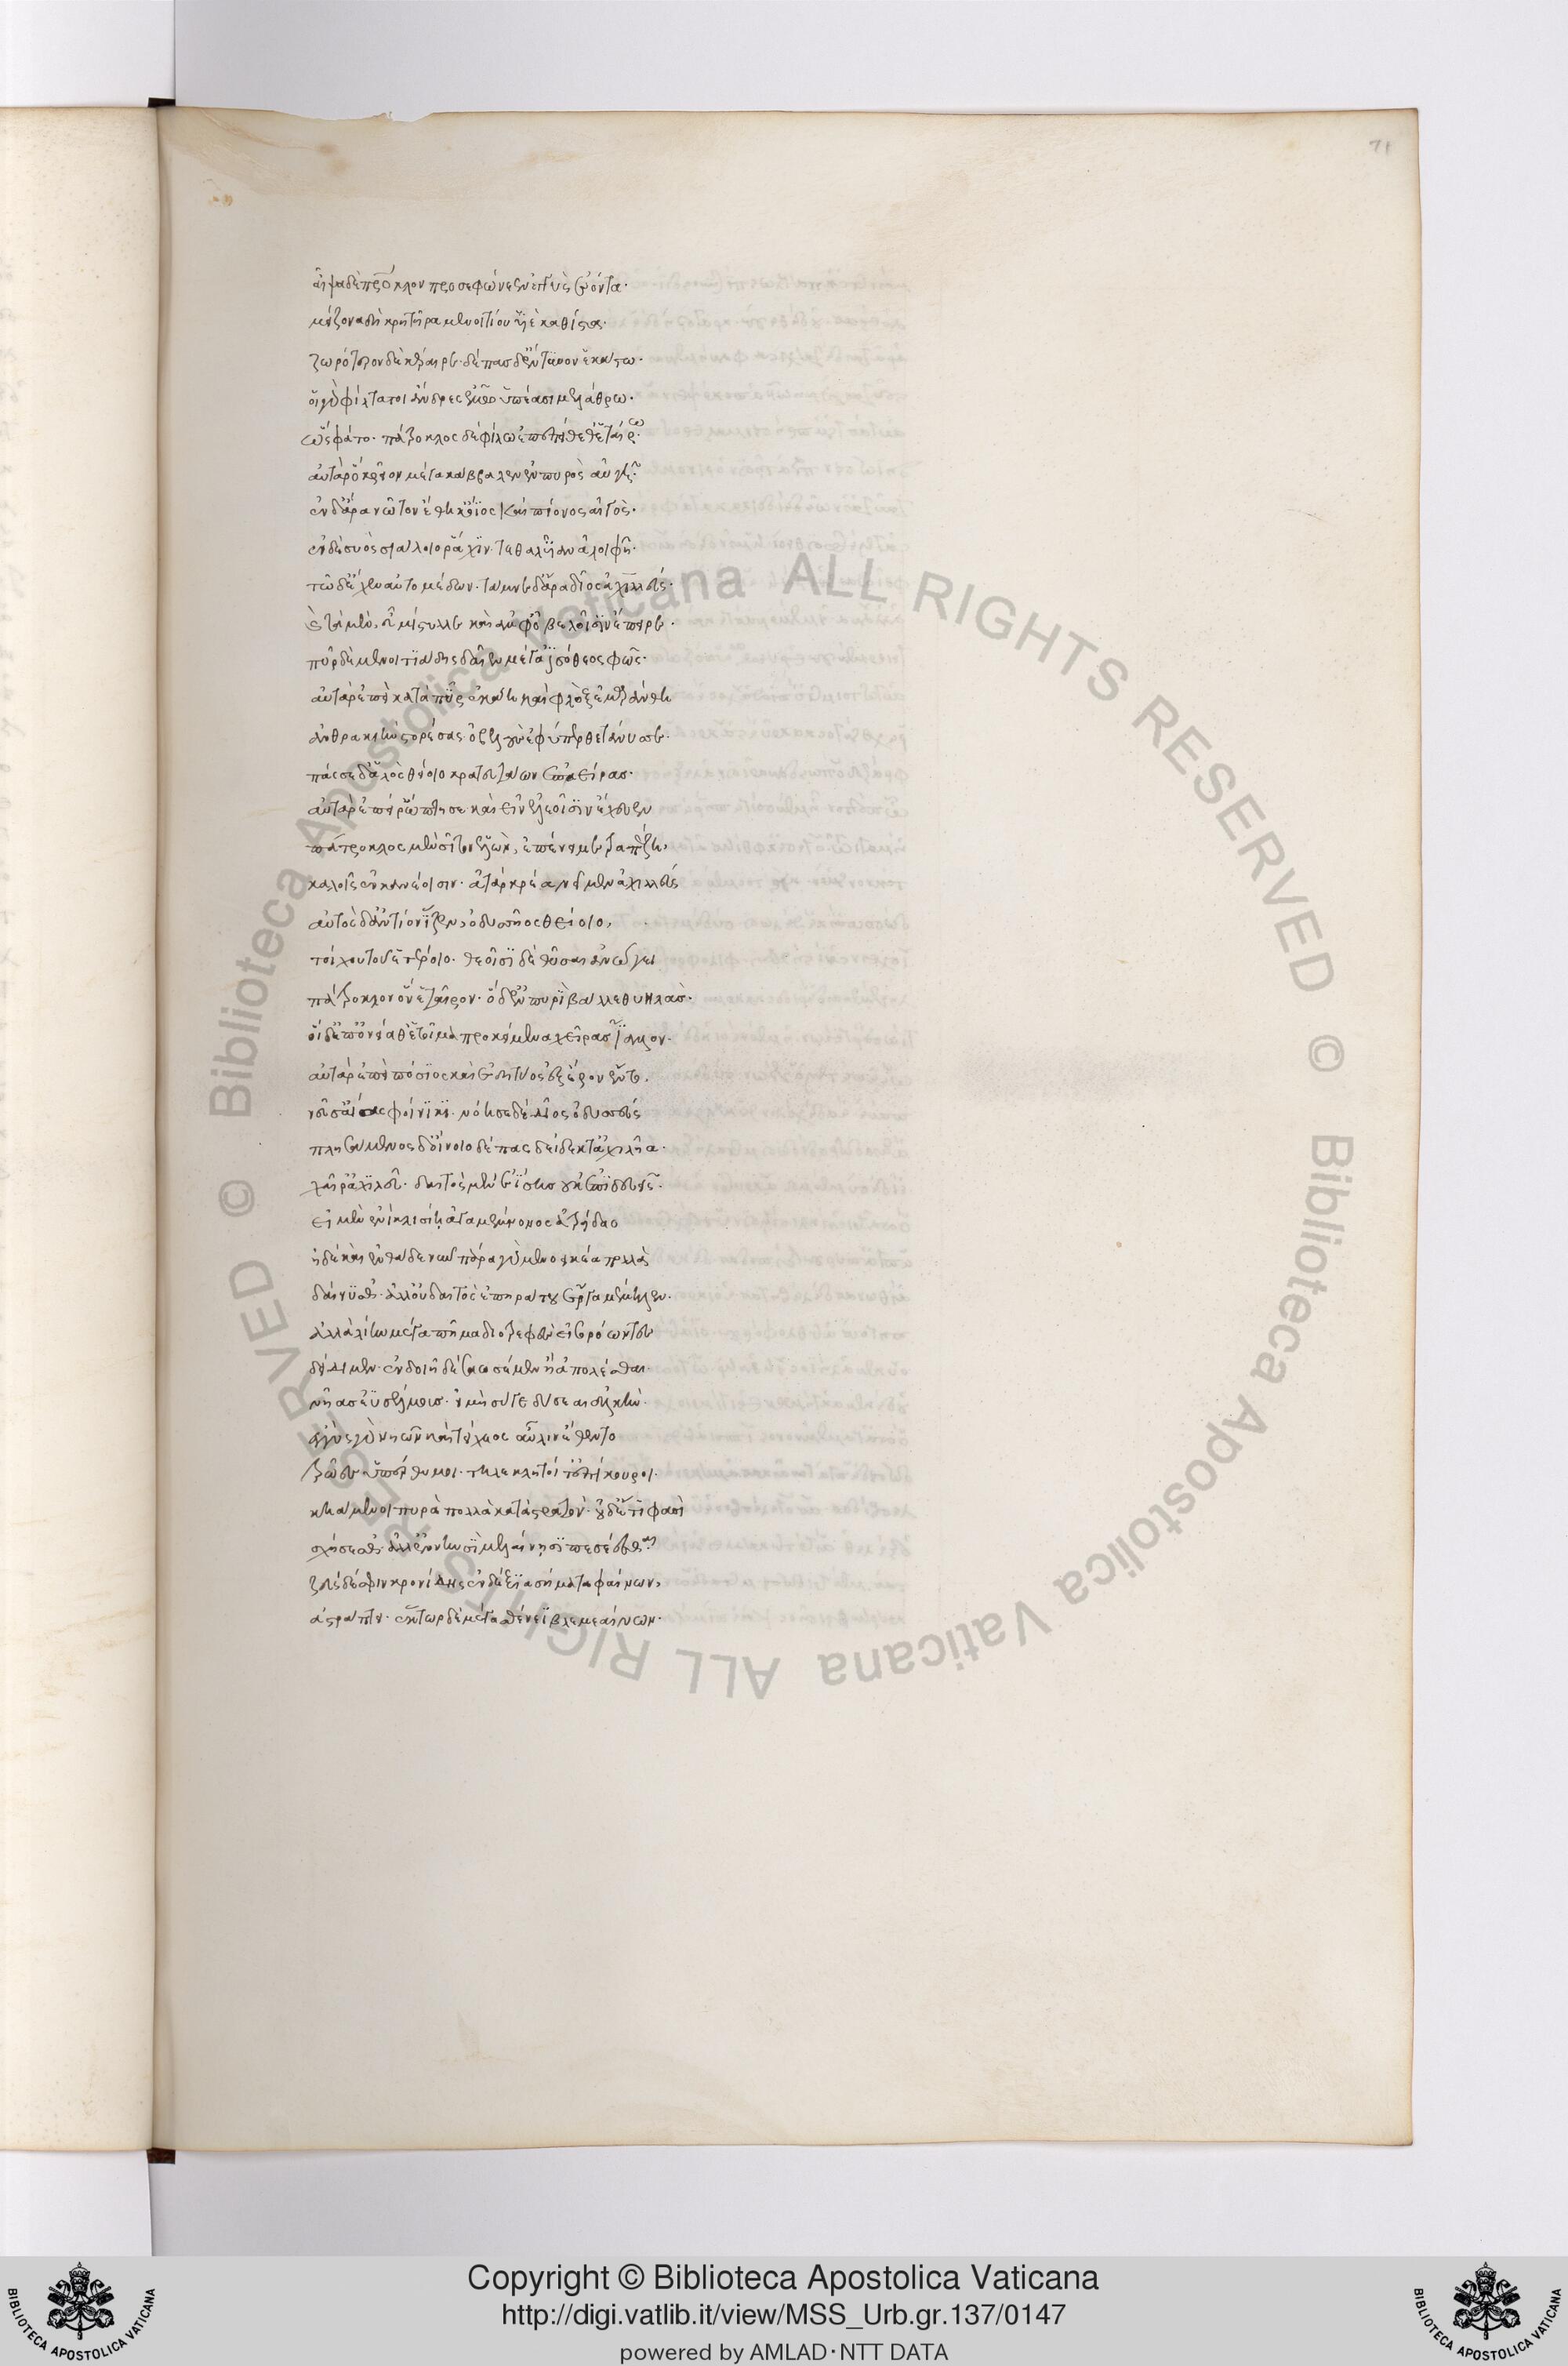 71
αἶψα δὲ πάτροκλον προσεφώνεεν ἐγγὺς ἐόντα·
μείζονα δὴ κρητῆρα μενοιτίου υἱὲ καθίστα·
ζωρότερον δὲ κέραιρε· δέπας δ' ἔντυνον ἑκάστω·
οἳ γὰρ φίλτατοι ἄνδρες ἐμῶ ὑπέασι μελάθρω·
ὣς ἔφατο· πάτροκλος δὲ φίλω ἐπεπείθεθ' ἑταίρω·
αὐτὰρ ὅ κρεῖον μέγα κάββαλεν ἐν πυρὸς αὐγῆ·
ἐν δ' ἄρα νῶτον ἔθηκ' ὄϊος καὶ πίονος αἰγὸς·
ἐν δὲ συὸς σιάλοιο ῥάχιν τεθαλυῖαν ἀλοιφῆ·
τῶ δ' ἔχεν αὐτομέδων· τάμνε δ' ἄρα δῖος ἀχιλλεύς·
καὶ τὰ μὲν εὖ μίστυλλε καὶ ἀμφ' ὀβελοῖσιν ἔπειρε·
πῦρ δὲ μενοιτιάδης δαῖεν μέγα ἰσόθεος φῶς·
αὐτὰρ ἐπεὶ κατὰ πῦρ ἐκάη καὶ φλὸξ ἐμαράνθη
ἀνθρακιὴν στορέσας ὀβελοὺς ἐφύπερθε τάνυσσε·
πάσσε δ' ἁλὸς θείοιο κρατευτάων ἐπαείρας·
αὐτὰρ ἐπεί ῥ' ὤπτησε καὶ εἰν ἐλεοῖσιν ἔχευεν
πάτροκλος μὲν σῖτον ἑλὼν, ἐπένειμε τραπέζη,
καλοῖς ἐν κανέοισιν· ἀτὰρ κρέα νεῖμεν ἀχιλλεύς
αὐτὸς δ' ἀντίον ἷζεν, ὀδυσσῆος θείοιο,
τοίχου τοῦ ἑτέροιο· θεοῖσι δὲ θῦσαι ἀνώγει
πάτροκλον ὃν ἑταῖρον· ὁ δ' ἐν πυρὶ βάλλε θυηλάς·
οἱ δ' ἐπ' ὀνείαθ' ἑτοῖμα προκείμενα χεῖρας ἴαλλον·
αὐτὰρ ἐπεὶ πόσιος καὶ ἐδητύος ἐξ ἔρον ἕντο,
νεῦσ' αἴας φοίνικι· νόησε δὲ δῖος ὀδυσσεύς
πλησάμενος δ' οἴνοιο δέπας δείδεκτ' ἀχιλῆα·
χαῖρ' ἀχιλεῦ· δαιτὸς μὲν ἐΐσης οὐκ ἐπιδευεῖς·
εἰ μὲν ἐνὶ κλισίη ἀγαμέμνονος ἀτρείδαο
ἠδὲ καὶ ἐνθάδε νῦν πάρα γὰρ μενοεικέα πολλὰ
δαίνυσθ'· ἀλλ' οὐ δαιτὸς ἐπηράτου ἔργα μέμηλεν·
ἀλλὰ λίην μέγα πῆμα διοτρεφὲς εἰσορόωντες
δείδιμεν· ἐν δοιῆ δὲ σαωσέμεν ἢ ἀπολέσθαι·
νῆας ἐϋσσέλμους· εἰ μὴ σύ γε δύσεαι ἀλκήν·
ἐγγὺς γὰρ νηῶν καὶ τείχεος αὖλιν ἔθεντο
τρῶες ὑπέρθυμοι· τηλεκλητοί τ' ἐπίκουροι·
κηάμενοι πυρὰ πολλὰ κατὰ στρατόν· οὐδ' ἔτι φασὶ
σχήσεσθ'· ἀλλ' ἐν νηυσὶ μελαίνησι πεσέεσθαι·
ζεὺς δέ σφιν κρονίδης ἐνδέξια σήματα φαίνων,
ἀστράπτει· ἕκτωρ δὲ μέγα σθένεϊ βλεμεαίνων·
© Biblioteca Apostolica Vaticana ALL RIGHTS RESERVED © Biblioteca Apostolica Vaticana ALL RIGHTS RESERVED
Copyright © Biblioteca Apostolica Vaticana
http://digi.vatlib.it/view/MSS_Urb.gr.137/0147
powered by AMLAD·NTT DATA
BIBLIOTECA APOSTOLICA VATICANA
BIBLIOTECA APOSTOLICA VATICANA